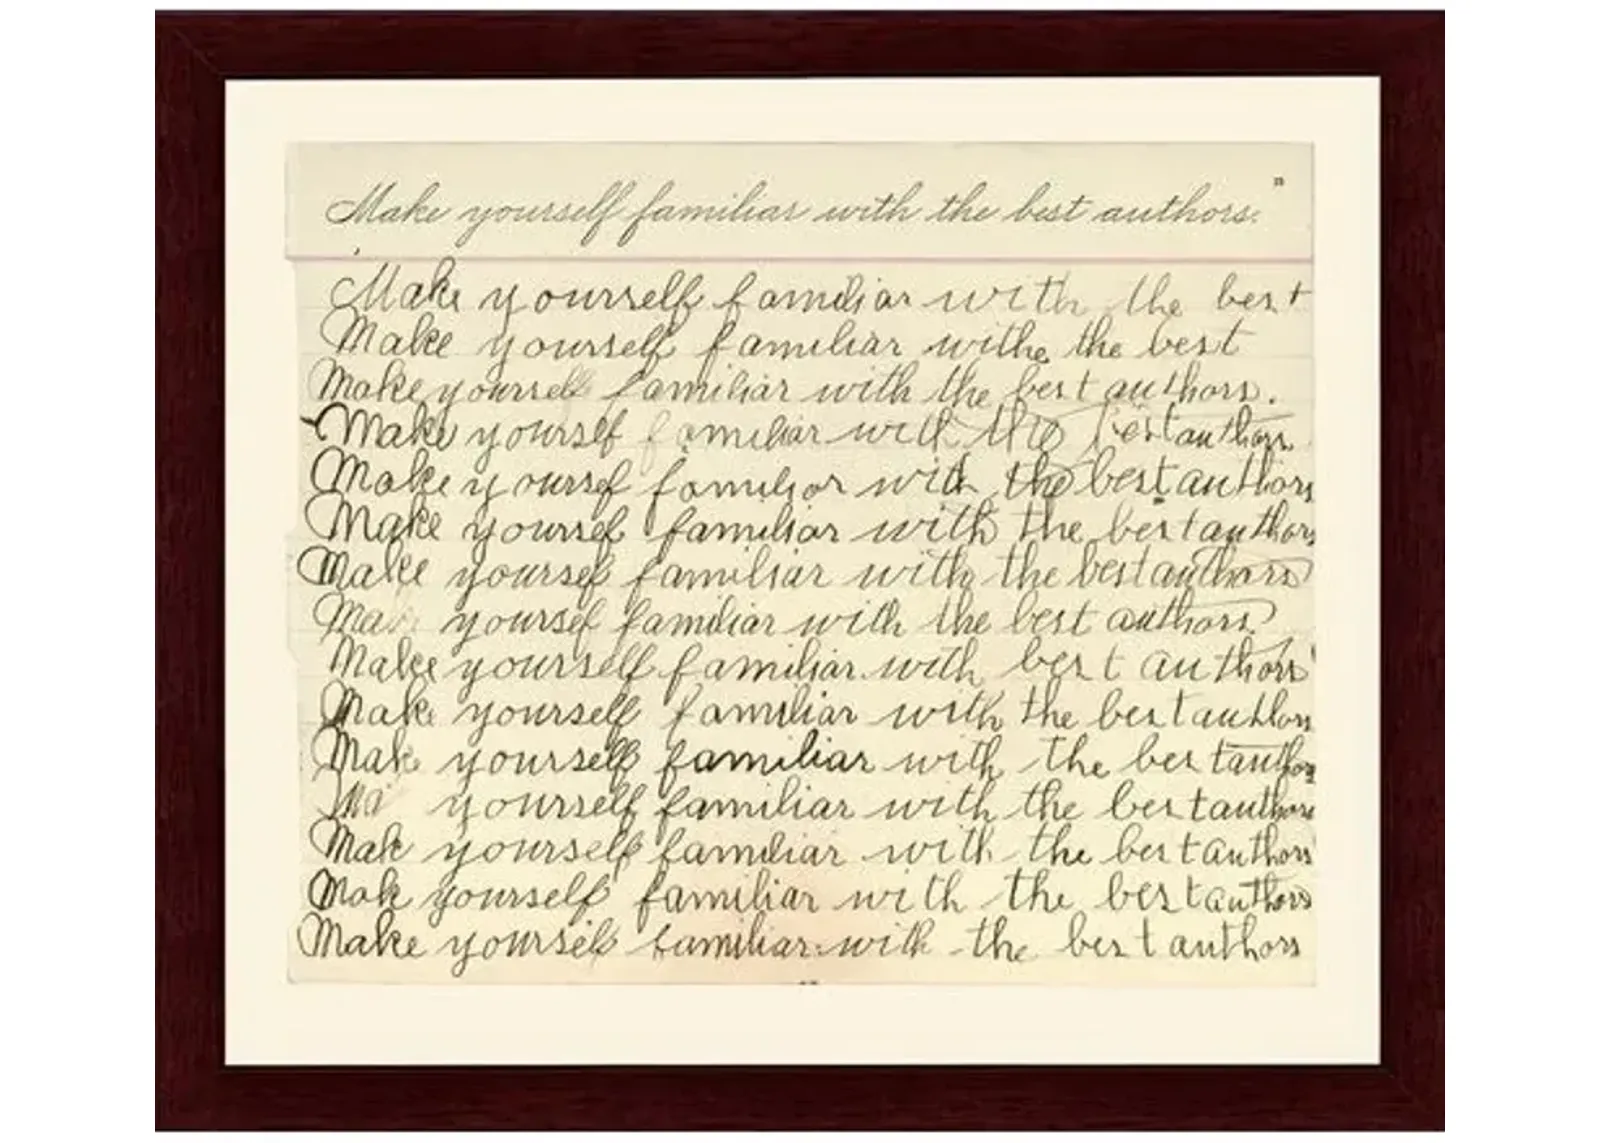 Make yourself familiar with the best authors.
Make yourself familiar with the best
Make yourself familiar withe the best
Make yourself familiar with the best authors.
Make yourslf familiar with the best authors
Make yoursef familiar with the best authors
Make yoursef familiar with the best authors
Make yoursef familiar with the best authors
yoursef familiar with the best authors
Make yourself familiar with best authors
Make yourself familiar with the best authors
Mak yourself familiar with the best author
yourself familiar with the best authors
Mak yourself familiar with the best authors
Mak yourself familiar with the best authors
Make yourself familiar with the best authors